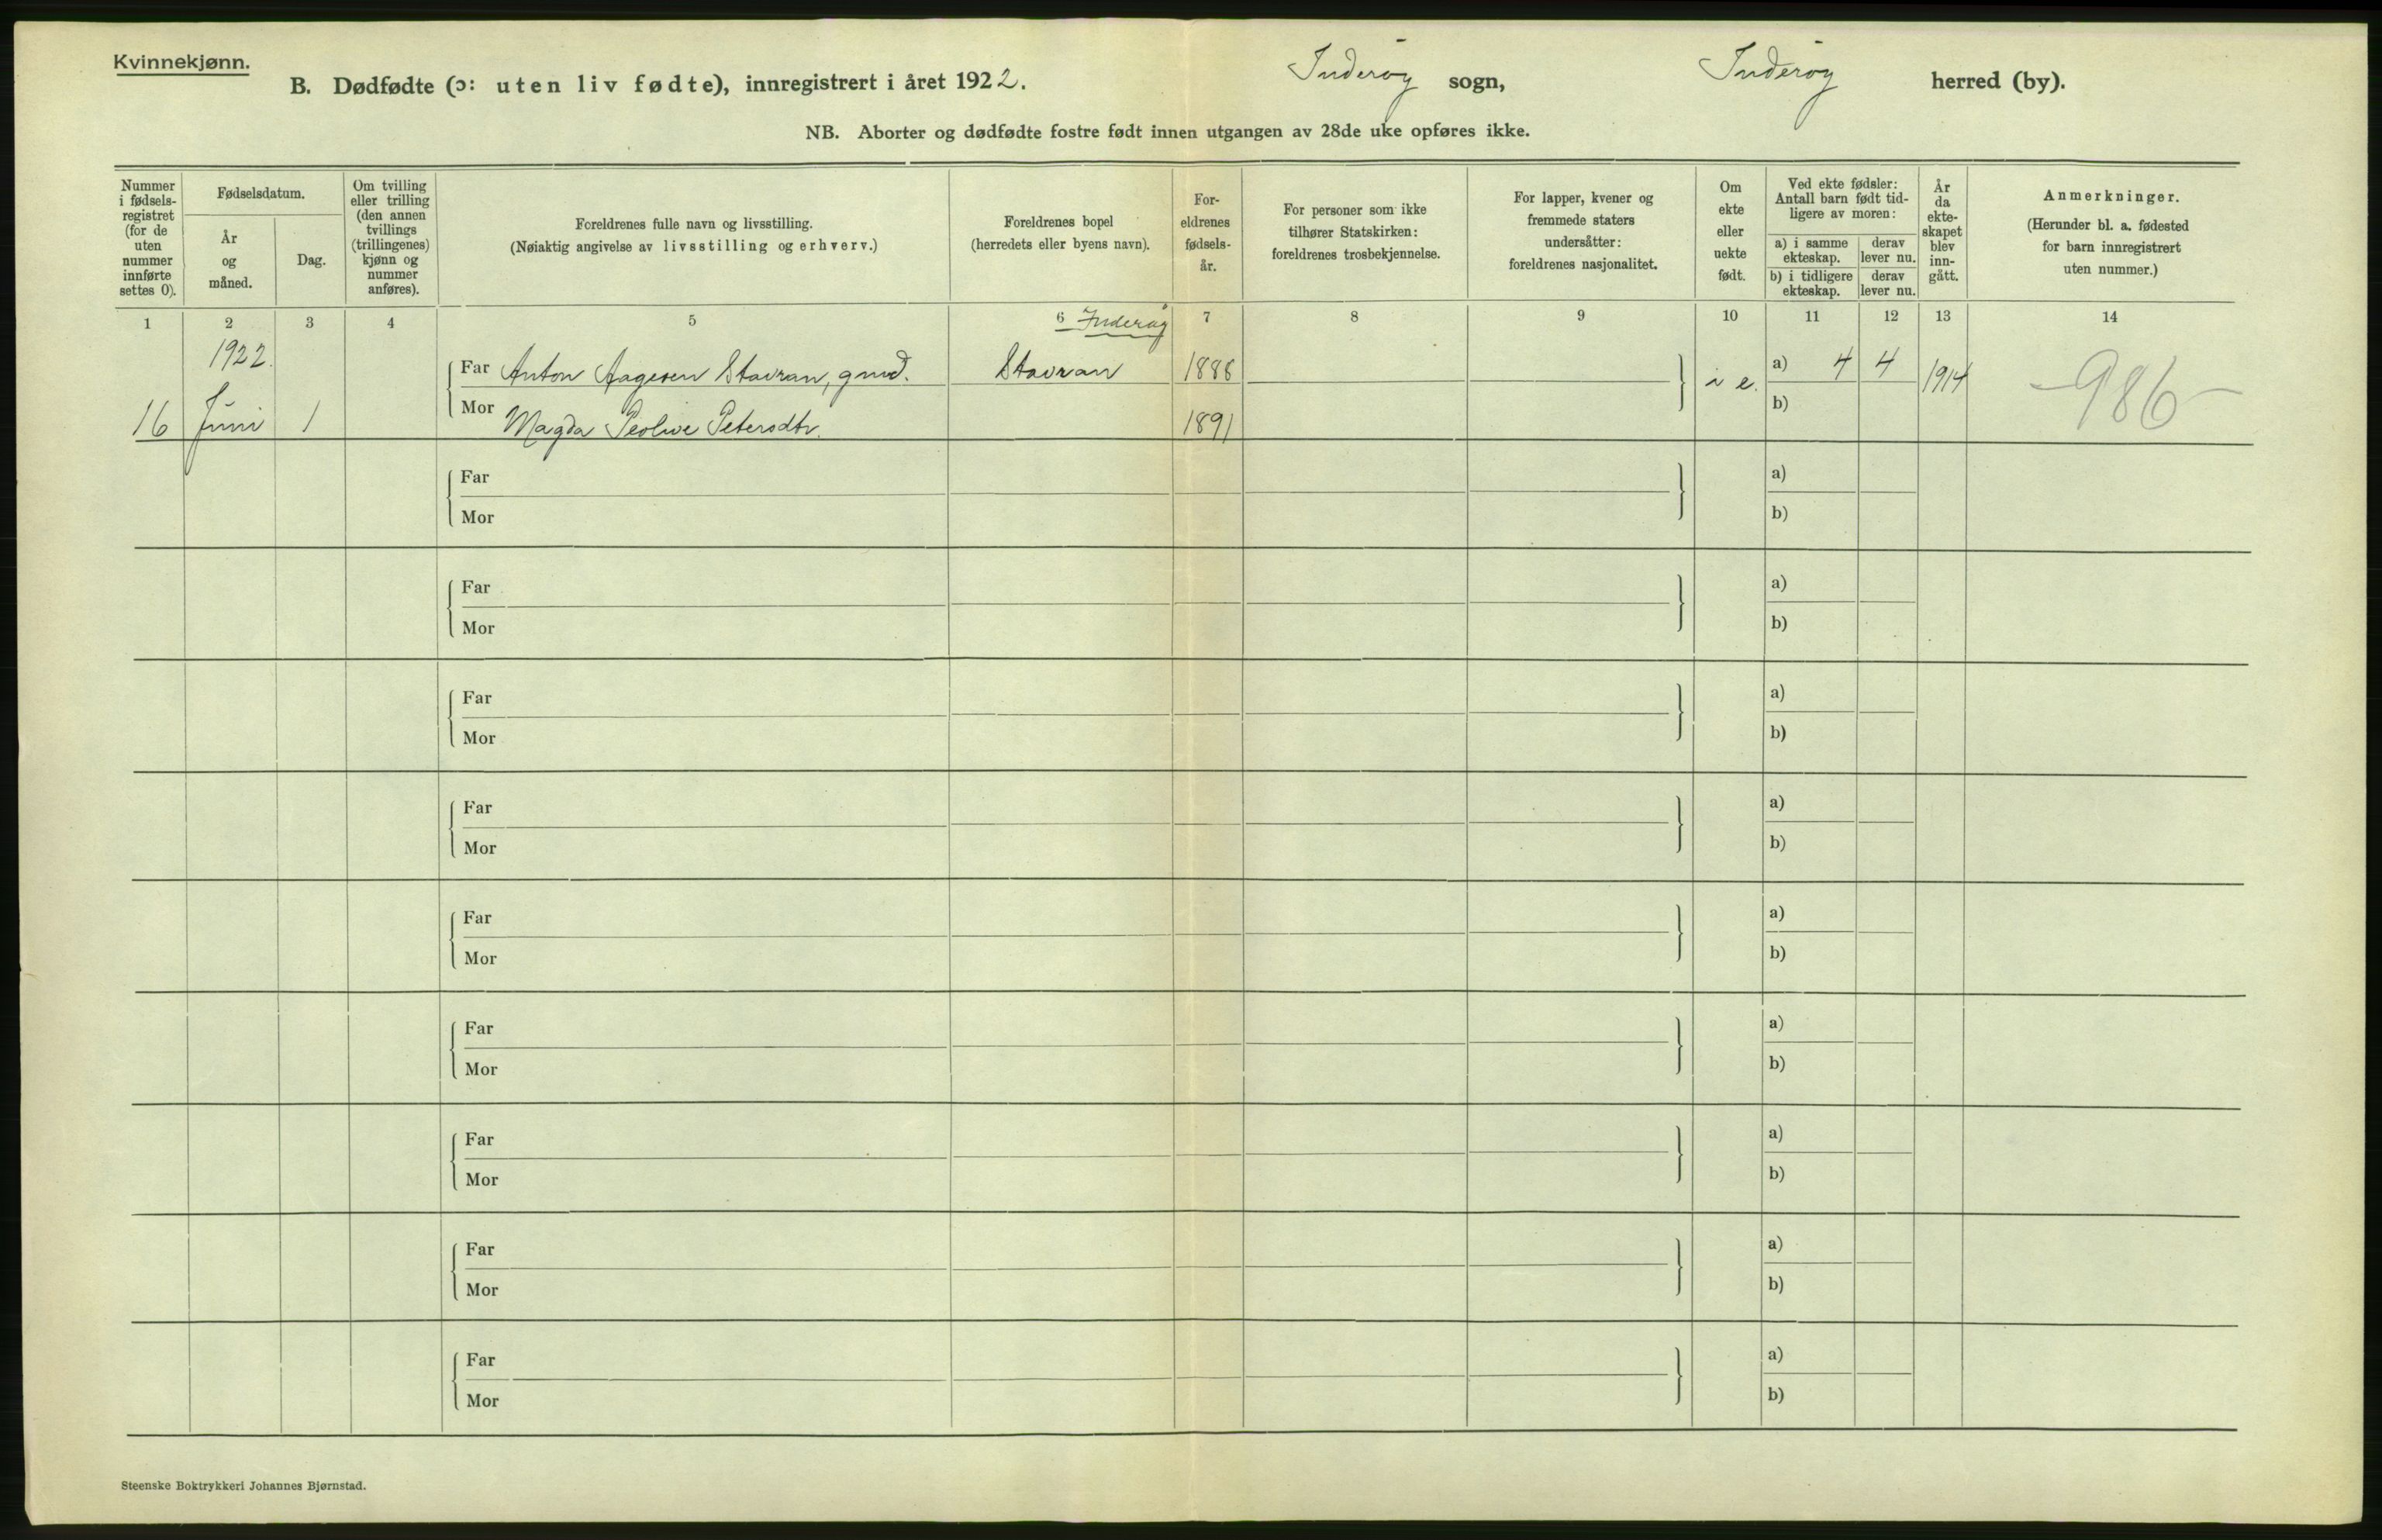 Kvinnekjønn.
B. Dødfødte (ɔ: uten liv fødte), innregistrert i året 1922. Inderøy sogn, Inderøy herred (by).
NB. Aborter og dødfødte fostre født innen utgangen av 28de uke opføres ikke.
Nummer i fødsels- registret (for de uten nummer innførte settes 0).
Fødselsdatum.
År og måned.
Dag.
Om tvilling eller trilling (den annen tvillings (trillingenes) kjønn og nummer anføres).
Foreldrenes fulle navn og livsstilling.
(Nøiaktig angivelse av livsstilling og erhverv.)
Foreldrenes bopel
(herredets eller byens navn).
For- eldrenes fødsels- år.
For personer som ikke tilhører Statskirken: foreldrenes trosbekjennelse.
For lapper, kvener og fremmede staters undersåtter: foreldrenes nasjonalitet.
Om ekte eller uekte født.
Ved ekte fødsler: Antall barn født tid- ligere av moren:
a) i samme ekteskap.
derav lever nu.
b) i tidligere ekteskap.
derav lever nu.
År da ekte- skapet blev inn- gått.
Anmerkninger.
(Herunder bl. a. fødested for barn innregistrert uten nummer.)
1 2 3 4 5 6 7 8 9 10 11 12 13 14
Inderøy
1922.
Far Anton Aagesen Stavran, gmd. Stavran 1886 i e. a) 4 4 1914 986
16 Juni 1 Mor Magda Petersdtr. 1891 b)
Far a)
Mor b)
Far a)
Mor b)
Far a)
Mor b)
Far a)
Mor b)
Far a)
Mor b)
Far a)
Mor b)
Far a)
Mor b)
Far a)
Mor b)
Far a)
Mor b)
Steenske Boktrykkeri Johannes Bjørnstad.